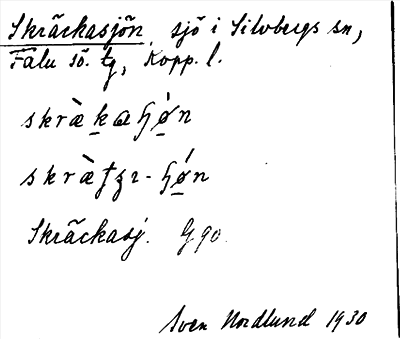 Skräckasjön, sjö i Silvbergs sn,
Falu sö. tg, Kopp. l.
skrä̀kaɧǿn
Skräckasj. Ggo.
Sven Nordlund 1930